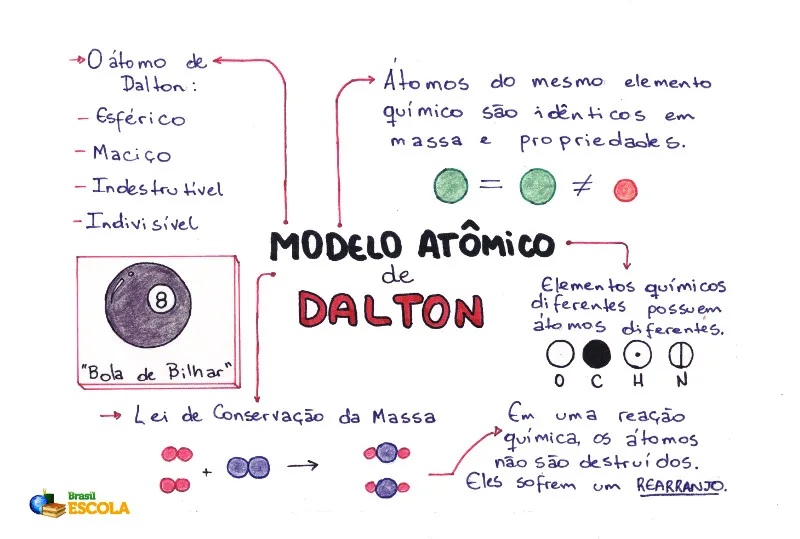 →O átomo de
Dalton:
- Esférico
- Maciço
- Indestrutível
- Indivisível
Átomos do mesmo elemento
químico são idênticos em
massa e propriedades.
= ≠
MODELO ATÔMICO
de
DALTON
8
"Bola de Bilhar"
Elementos químicos
diferentes possuem
átomos diferentes.
O C H N
→ Lei de Conservação da Massa
+ →
Em uma reação
química, os átomos
não são destruídos.
Eles sofrem um REARRANJO.
Brasil
ESCOLA